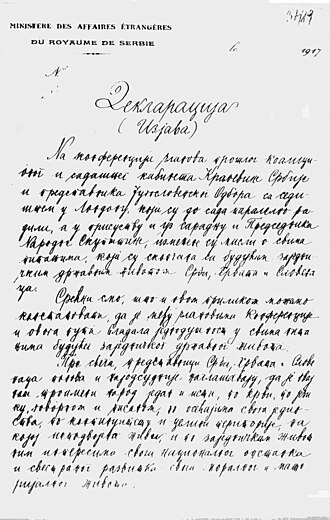 MINISTÈRE DES AFFAIRES ÉTRANGÈRES
DU ROYAUME DE SERBIE
le 1917
№
Декларација
(Изјава)
На конференцији чланова прошлог коалици
оног и садашњег кабинета Краљевине Србије
и представника Југословенског Одбора са седи
штем у Лондону, који су до сада паралелно ра
дили, а у присуству и сарадњу Председника
Народне Скупштине, измењене су мисли о свима
питањима, која су скопчана са будућим заједни
чким државним животом Срба, Хрвата и Слове
на
Срећни смо, што и овом приликом можемо
констатовати, да је међу члановима Конференције
и овога пута владала једнодушност у свима пита
њима будућег заједничког државног живота.
Пре свега, представници Срба, Хрвата и Слове
наца поново и најодсудније наглашавају, да је овај
наш народ један исти, по крви, по јези
ку, говорном и писаном, по осећајима свога једин
ства, по континуитету и целини територије, на
којој неподвојено живи, и по заједничким живот
ним интересима свога националног опстанка
и свестраног развитка свога моралног и мате
ријалног живота.